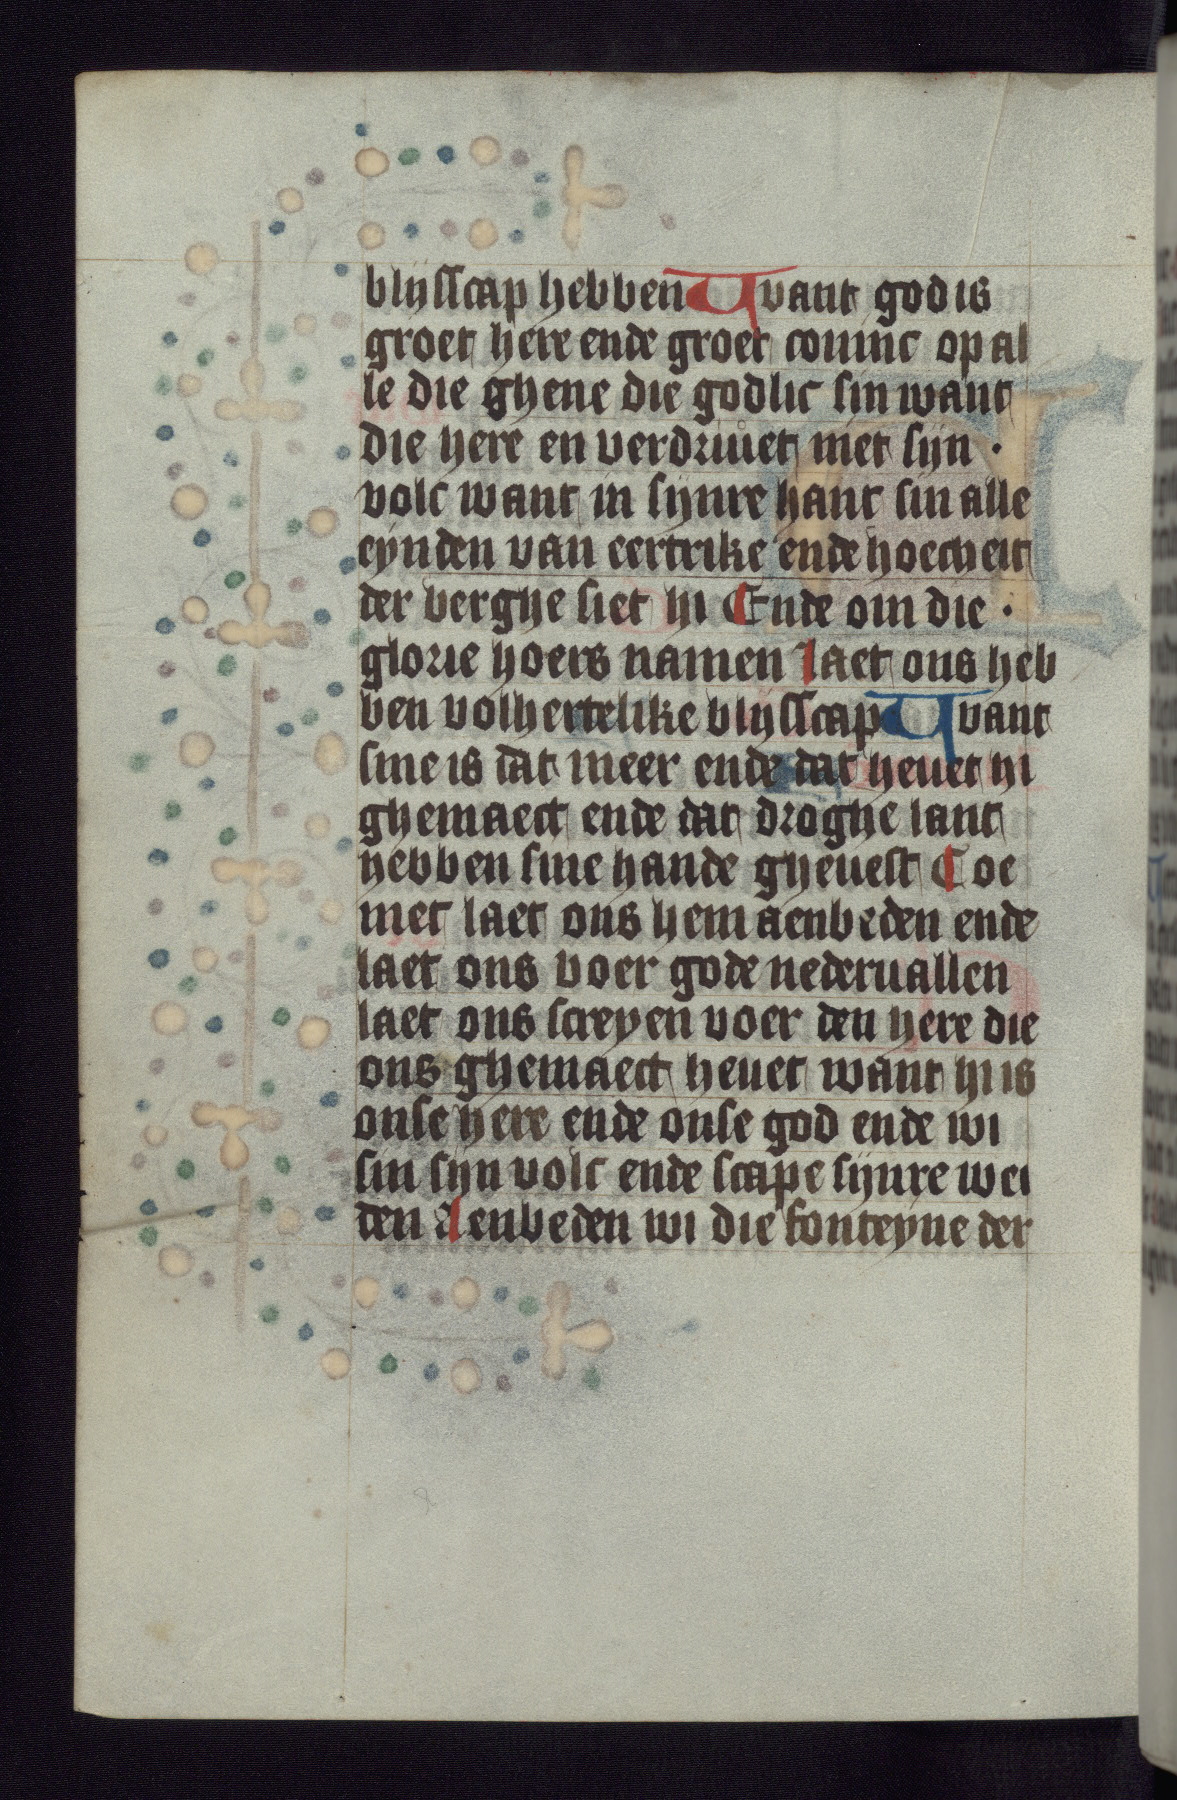 blijsscap hebben Want god is
groet here ende groet coninc op al
le die ghene die godlic sin want
die here en verdriuet niet sijn ·
volc want in sijnre hant sin alle
eynden van eertrike ende hoecheit
der berghe siet hi Ende om die ·
glorie hoers namen laet ons heb
ben volhertelike blijsscap Want
sine is dat meer ende dat heuet hi
ghemaect ende dat droghe lant
hebben sine hande gheuest Coe
met laet ons hem aenbeden ende
laet ons voer gode nederuallen
laet ons screyen voer den here die
ons ghemaect heuet want hi is
onse here ende onse god ende wi
sin sijn volc ende scape sijnre wei
den Aenbeden wi die fonteyne der